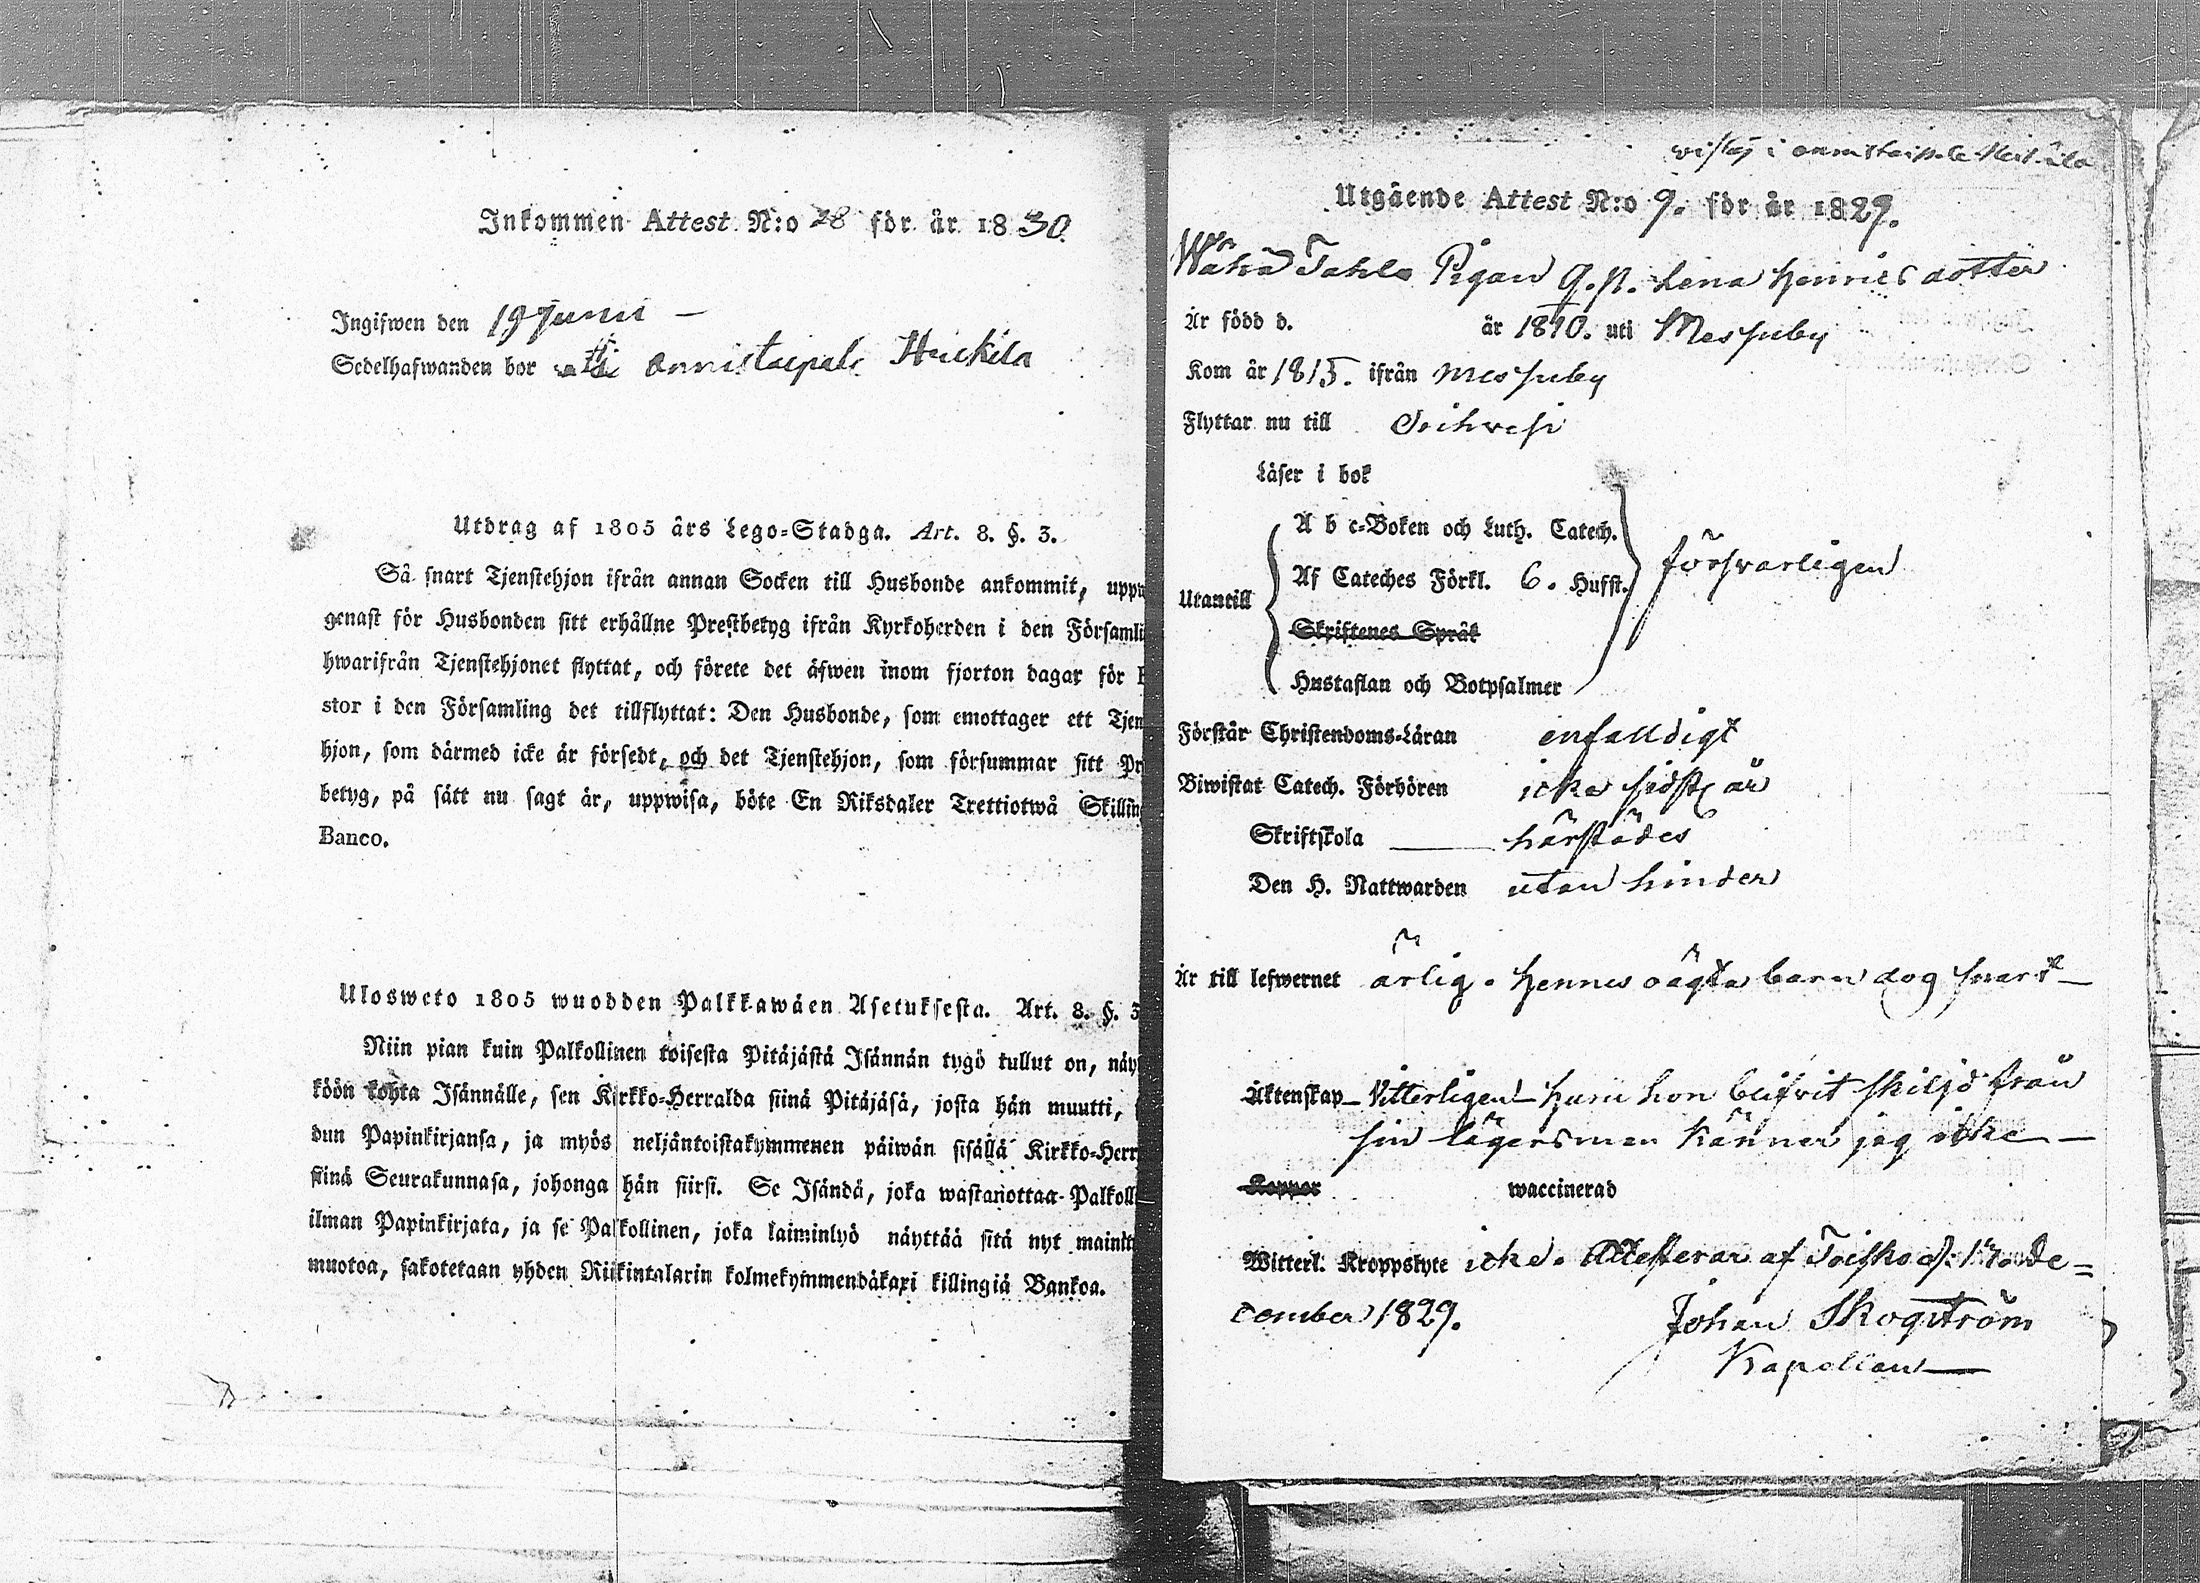 Inkommen Attest N:o 28 för år 1830.
Ingifwen den 19 Junii –
Sedelhafwanden bor Onnistaipale Heikila
Utdrag af 1805 års Lego-Stadga. Art. 8. §. 3.
Så snart Tjenstehjon ifrån annan Socken till Husbonde ankommit, uppw
genast för Husbonden sitt erhållne Prestbetyg ifrån Kyrkoherden i den Församli
hwarifrån Tjenstehjonet flyttat, och förete det äfwen inom fjorton dagar för P
stor i den Församling det tillflyttat: Den Husbonde, som emottager ett Tjen
hjon, som därmed icke är försedt, och det Tjenstehjon, som försummar sitt Pr
betyg, på sätt nu sagt är, uppwisa, böte En Riksdaler Trettiotwå Skillin
Banco.
Ulosweto 1805 wuodden Palkkawäen Asetuksesta. Art. 8. §. 3
Niin pian kuin Palkollinen toisesta Pitäjästä Isännän tygö tullut on, näy
köön kohta Isännälle, sen Kirkko-Herralda siinä Pitäjäsä, josta hän muutti,
dun Papinkirjansa, ja myös neljäntoistakymmenen päiwän sisällä Kirkko-Herr
siinä Seurakunnasa, johonga hän siirsi. Se Isändä, joka wastanottaa Palkolli
ilman Papinkirjata, ja se Palkollinen, joka laiminlyö näyttää sitä nyt mainit
muotoa, sakotetaan yhden Riikintalarin kolmekymmendäkaxi killingiä Bankoa.
Utgående Attest N:o 9. för år 1829.
Wähä Tahlo Pigan Q.p. Lena Henricsdotter
Är född d. år 1810. uti Messuby
Kom år 1815. ifrån Messuby
Flyttar nu till Orihvesi
Läser i bok
A b c-Boken och Luth. Catech.
Utantill Af Cateches Förkl. 6. Hufst. försvarligen
Skriftenes Språk
Hustaflan och Botpsalmer
Förstår Christendoms-Läran enfalldigt
Biwistat Catech. Förhören icke sidst. år
Skriftskola härstädes
Den H. Nattwarden utan hinder
Är till lefwernet ärlig. Hennes oägta barn dog snart –
Äktenskap – Vitterligen – Huru hon blifvit skiljd från
sin lägersman känner jag icke –
Koppor waccinerad
Witterl. Kroppslyte icke. Attesterar af Teisko d. 17. De=
cember 1829. Johan Skogström
Kapellan –